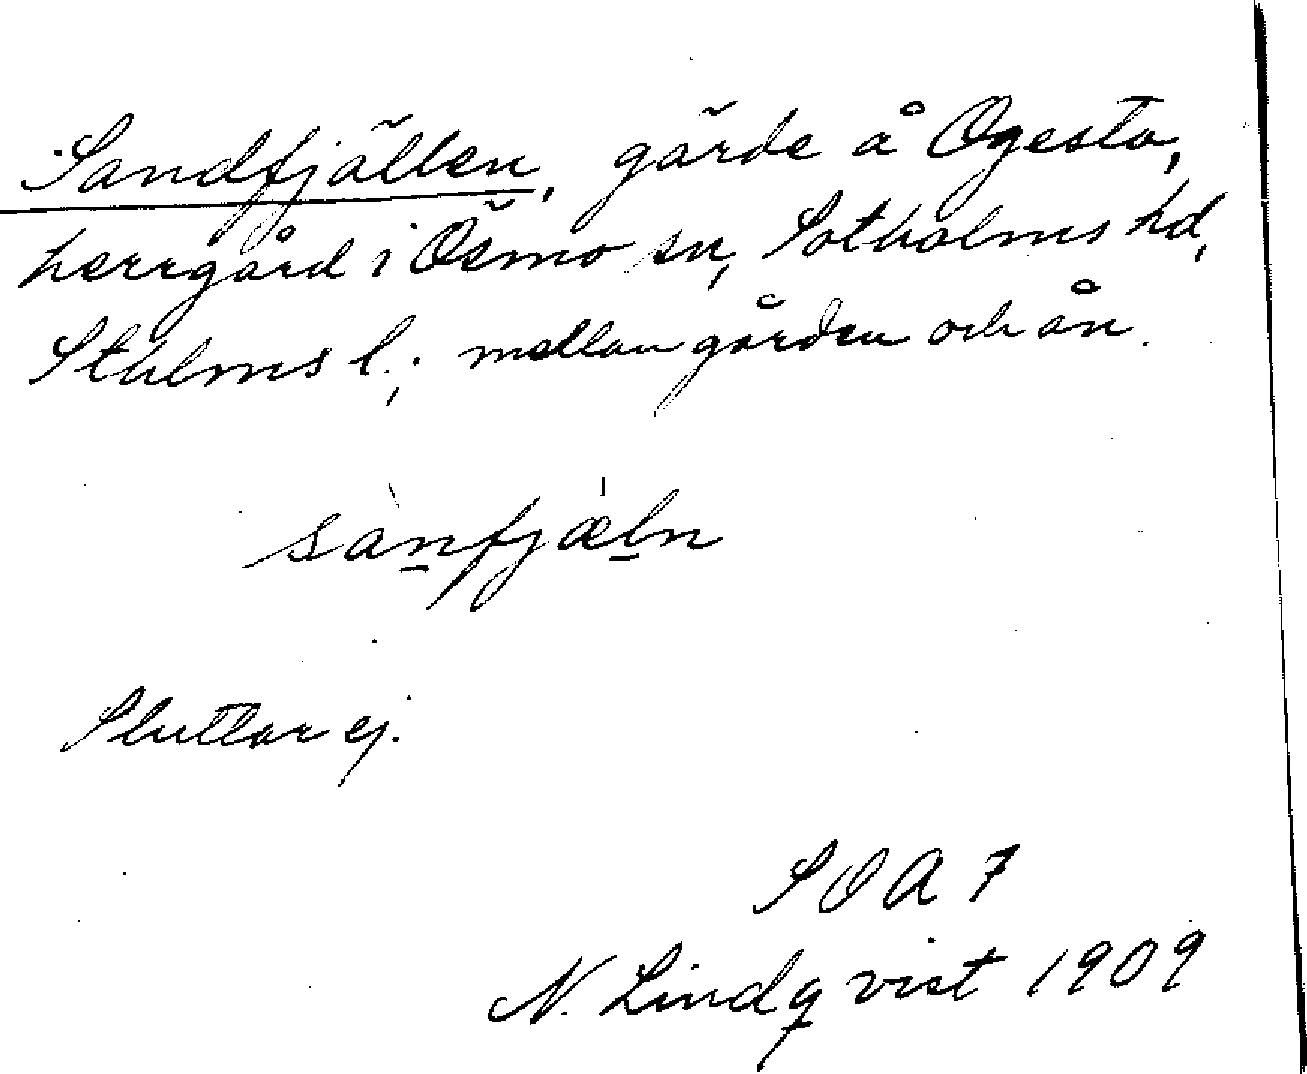 Sandfjällen, gärde å Ogesta,
herrgård i Ösmo sn, Sotholms hd,
Sthlms l.; mellan gården och ån.
sànfjæln
Sluttar ej.
SOA 7
N. Lindqvist 1909